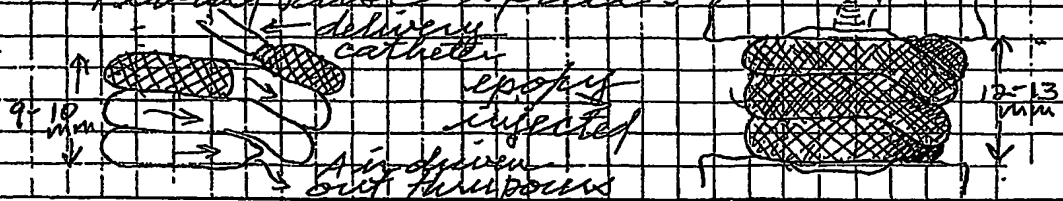 delivery
catheter
9-10
mm
epoxy
injected
Air driven
out thru pores
12-13
mm